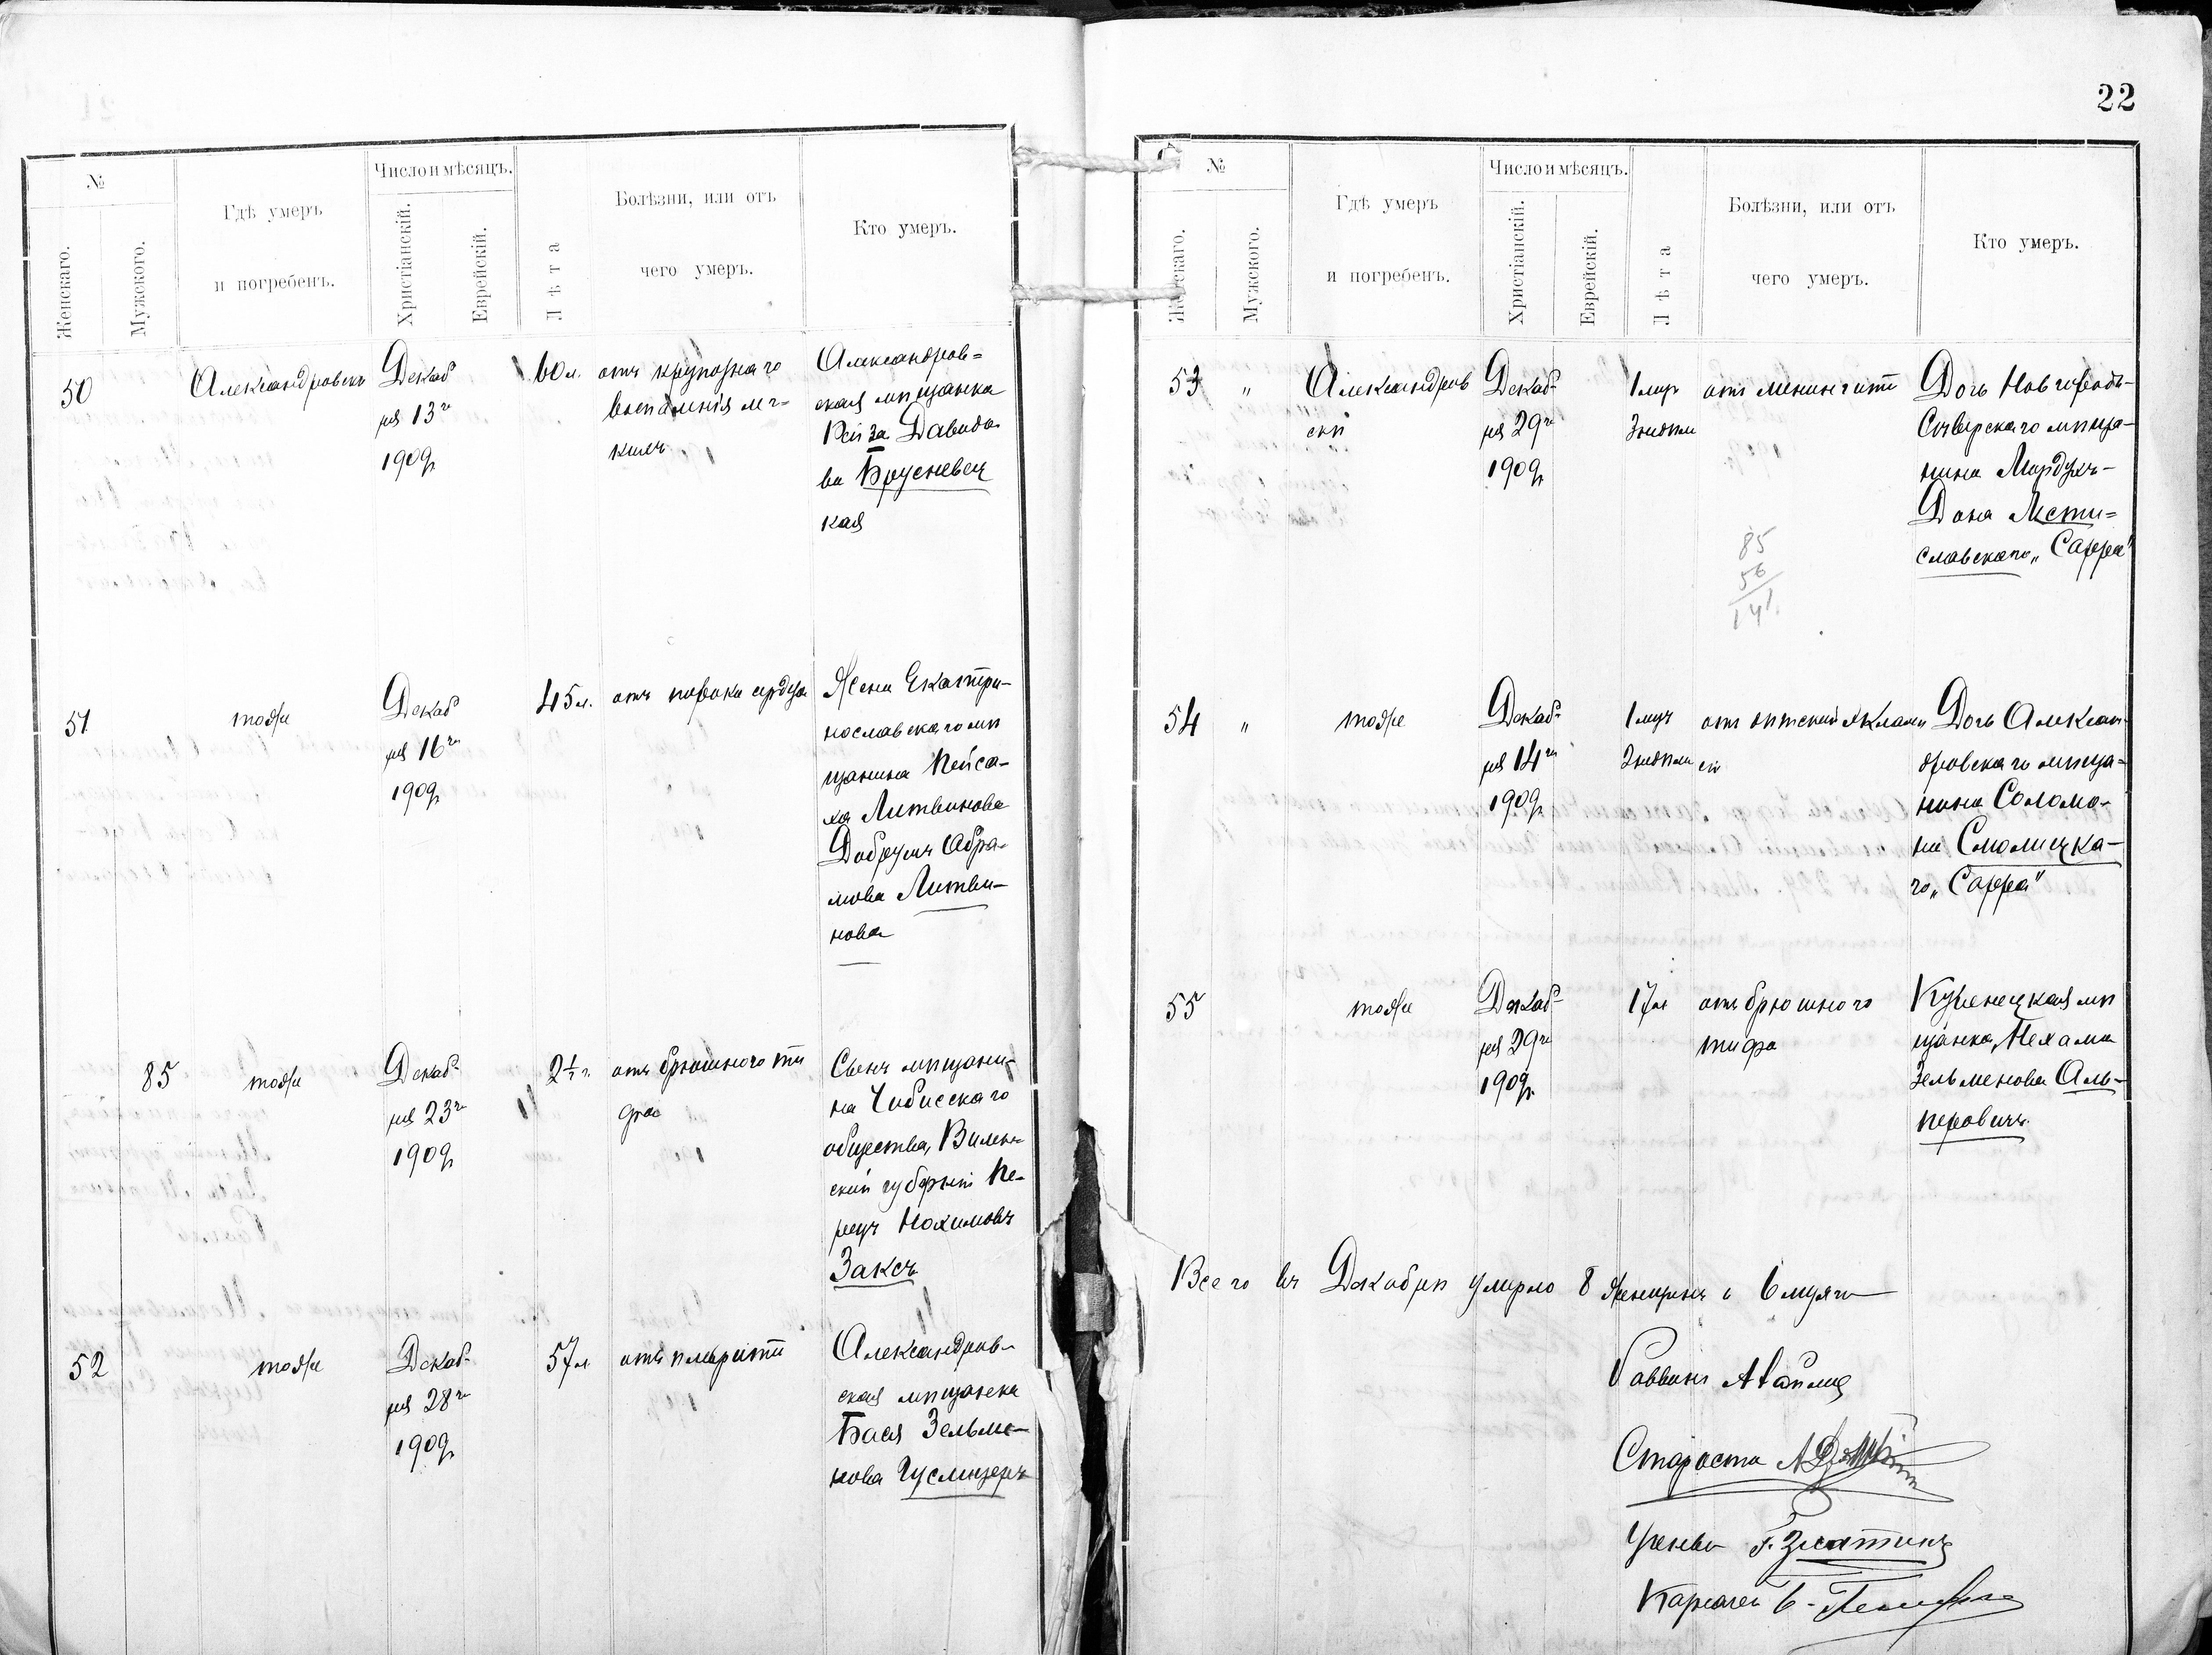 22
№
Женскаго.
Мужского.
Гдѣ умеръ
и погребенъ.
Число и мѣсяцъ.
Христіанскій.
Еврейскій.
Лѣта
Болѣзни, или отъ
чего умеръ.
Кто умеръ.
50
Александровскъ
Декаб
ря 13го
1909г
60 л.
отъ крупознаго
воспаленія лег=
кихъ
Александров=
ская мѣщанка
Рейза Давидо
ва Брусневец
кая
51
тоже
Декаб
ря 16го
1909г
45 л.
отъ порока сердца
Жена Екатери-
нославскаго мѣ
щанина Пейса-
ха Литвинова
Добрушъ Абра-
мова Литви-
нова
85
тоже
Декаб-
ря 23го
1909г
2½ г.
отъ брюшного ти
фа
Сынъ мѣщани-
на
общества, Вилен-
ской губерніи Пе-
рецъ Нохимовъ
Заксъ
52
тоже
Декаб-
ря 28го
1909г
57 л
отъ плеврита
Александров-
ская мѣщанка
Бася Зельма-
нова Гуслицеръ
№
Женскаго.
Мужского.
Гдѣ умеръ
и погребенъ.
Число и мѣсяцъ.
Христіанскій.
Еврейскій.
Лѣта
Болѣзни, или отъ
чего умеръ.
Кто умеръ.
53 "
Александров
скѣ
Декаб-
ря 29го
1909г
1 мѣс
3 недѣли
отъ менингита
Дочь Новгородъ-
Сѣверскаго мѣща-
нина Мордухъ-
Дона Мсти=
славскаго „Сарра"
85
56
141
54 "
тоже
Декаб-
ря 14го
1909г
1 мѣс
2 недѣли
отъ дѣтской экламп
сіи
Дочь Алексан-
дровскаго мѣща-
нина Соломо-
на Смолицка-
го „Сарра"
55
тоже
Декаб-
ря 29го
1909г
17 л
отъ брюшного
тифа
Куренецкая мѣ
щанка, Нехама
Зельменова Аль-
перовичъ
Всего въ Декабрѣ умерло 8 женщинъ и 6 мужч
Раввинъ
Староста
Ученый Г. Златинъ
Казначей